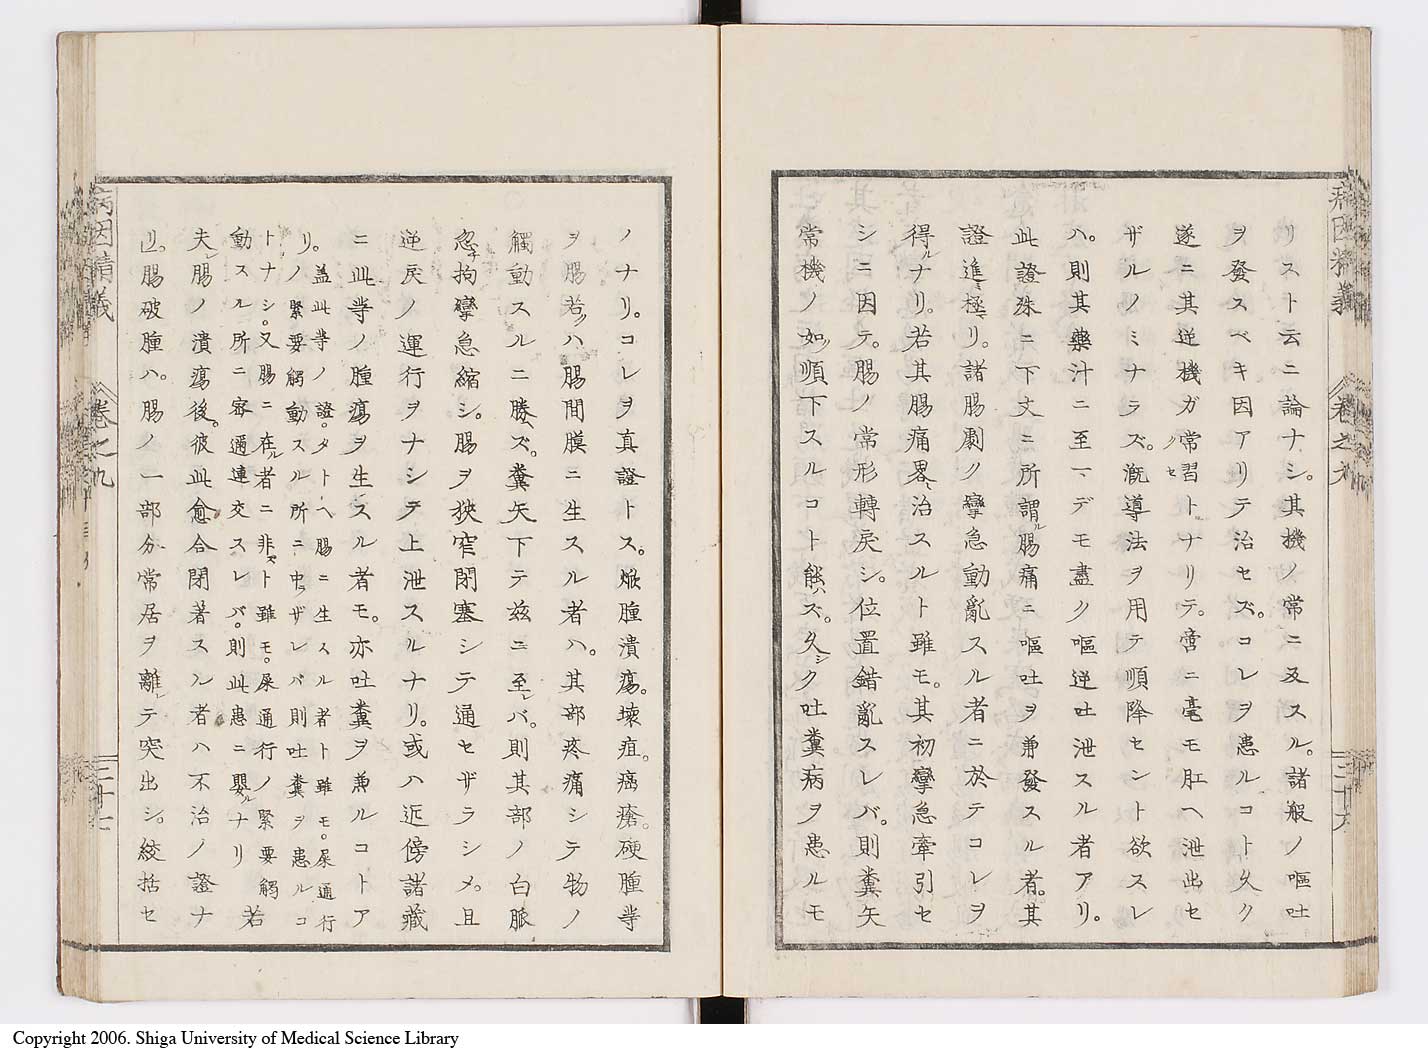 病因精義 卷之九 三十六
リスト云ニ論ナシ。其機ノ常ニ反スル。諸般ノ嘔吐
ヲ發スベキ因アリテ治セズ。コレヲ患ルコト久ク
遂ニ其逆機ガ常習トナリテ。啻ニ毫モ肛ヘ泄出セ
ザルノミナラズ。漑導法ヲ用テ順降セント欲スレ
ハ。則其藥汁ニ至マデモ盡ク嘔逆吐泄スル者アリ。
此證殊ニ下文ニ所謂ル腸痛ニ嘔吐ヲ兼發スル者。其
證進極リ。諸腸劇ク攣急動亂スル者ニ於テコレヲ
得ルナリ。若其腸痛畧治スルト雖モ。其初攣急牽引セ
シニ因テ。腸ノ常形轉戻シ。位置錯亂スレバ。則糞矢
常機ノ如ク順下スルコト能ハズ。久シク吐糞病ヲ患ルモ
ノナリ。コレヲ真證トス。焮腫潰瘍。壊疽。癌瘡。硬腫等
ヲ腸若クハ腸間膜ニ生スル者ハ。其部疼痛シテ物ノ
觸動スルニ勝ズ。糞矢下テ茲ニ至レバ。則其部ノ白脈
忽チ拘攣急縮シ。腸ヲ狹窄閉塞シテ通セザラシメ。且
逆戻ノ運行ヲナシテ上泄スルナリ。或ハ近傍諸藏
ニ此等ノ腫瘍ヲ生スル者モ。亦吐糞ヲ兼ルコトア
リ。蓋此等ノ證。タトヘ腸ニ生スル者ト雖モ。屎通行
ノ緊要觸動スル所ニ中ザレバ則吐糞ヲ患ルコ
トナシ。又腸ニ在ル者ニ非スト雖モ。屎通行ノ緊要觸
動スル所ニ密邇連交スレバ。則此患ニ嬰ルナリ 若
夫レ腸ノ潰瘍後。彼此愈合閉著スル者ハ不治ノ證ナ
リ。腸破腫ハ。腸ノ一部分常居ヲ離レテ突出シ。絞括セ
病因精義 卷之九 三十七
Copyright 2006. Shiga University of Medical Science Library